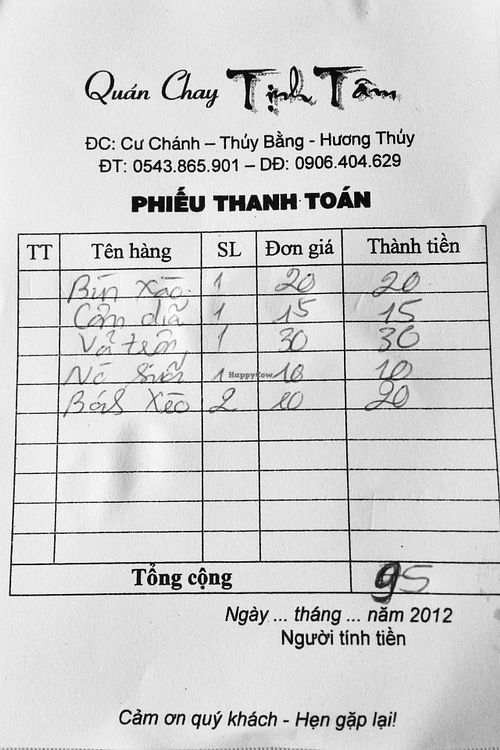 Quán Chay Tịnh Tâm
ĐC: Cư Chánh – Thủy Bằng - Hương Thủy
ĐT: 0543.865.901 – DĐ: 0906.404.629
PHIẾU THANH TOÁN
TT Tên hàng SL Đơn giá Thành tiền
Bún xào 1 20 20
Cơm dĩa 1 15 15
Vả trộn 1 30 30
1 10 10
HappyCow
Bánh xèo 2 10 20
Tổng cộng 95
Ngày ... tháng ... năm 2012
Người tính tiền
Cảm ơn quý khách - Hẹn gặp lại!